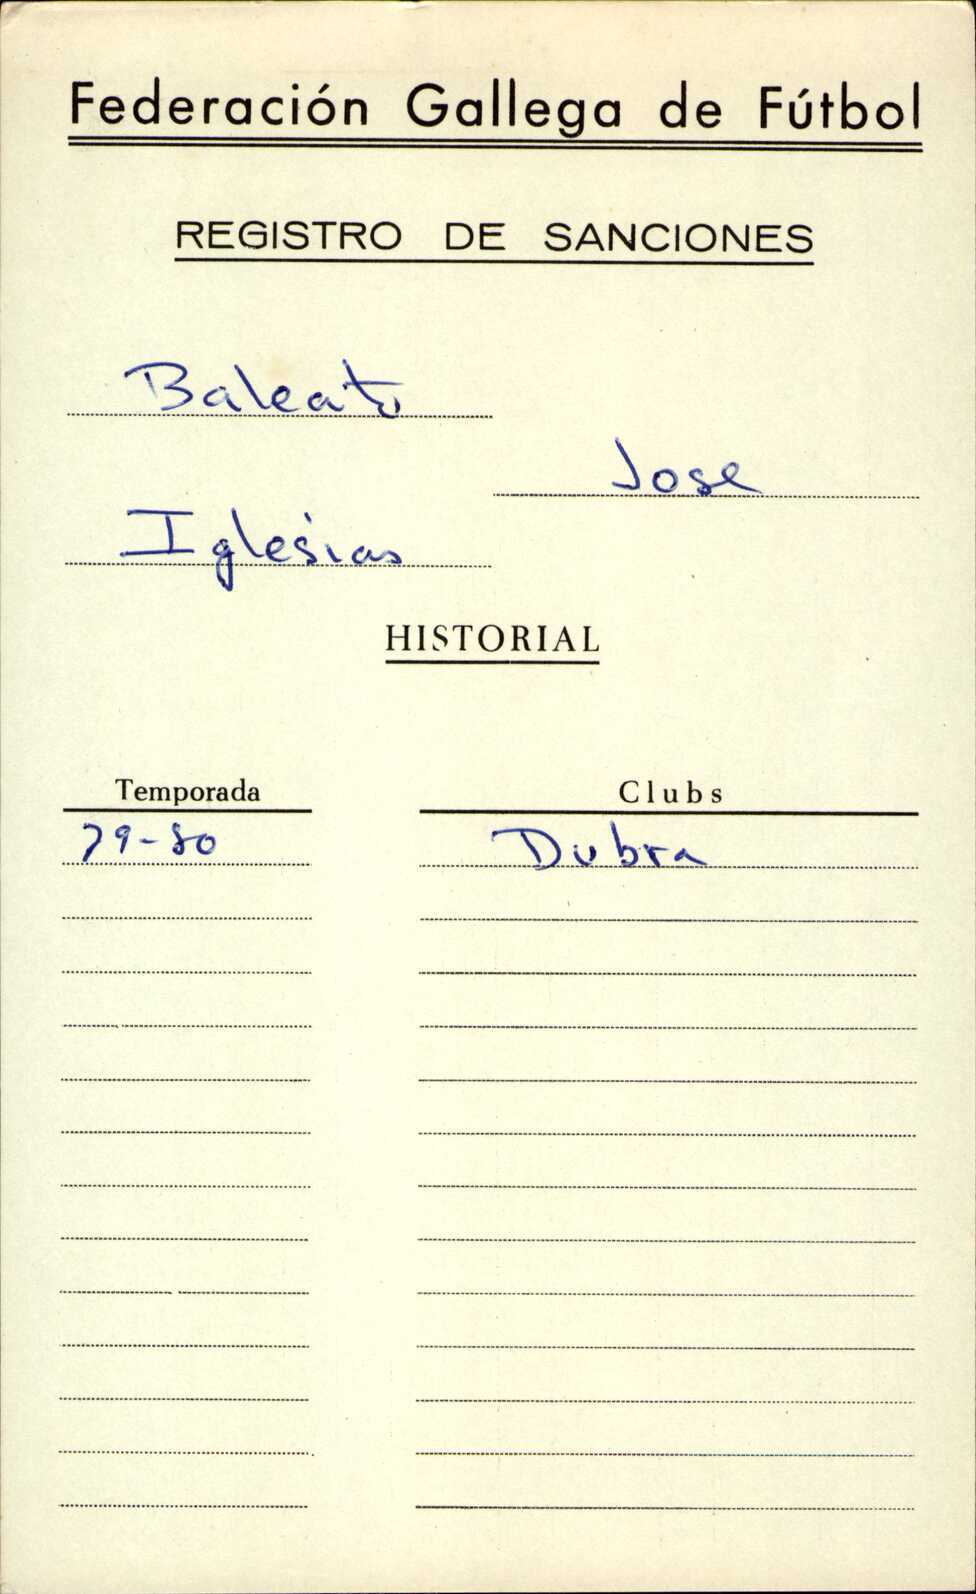 Federación Gallega de Fútbol
REGISTRO DE SANCIONES
Baleato
Jose
Iglesias
HISTORIAL
Temporada Clubs
79-80 Dubra